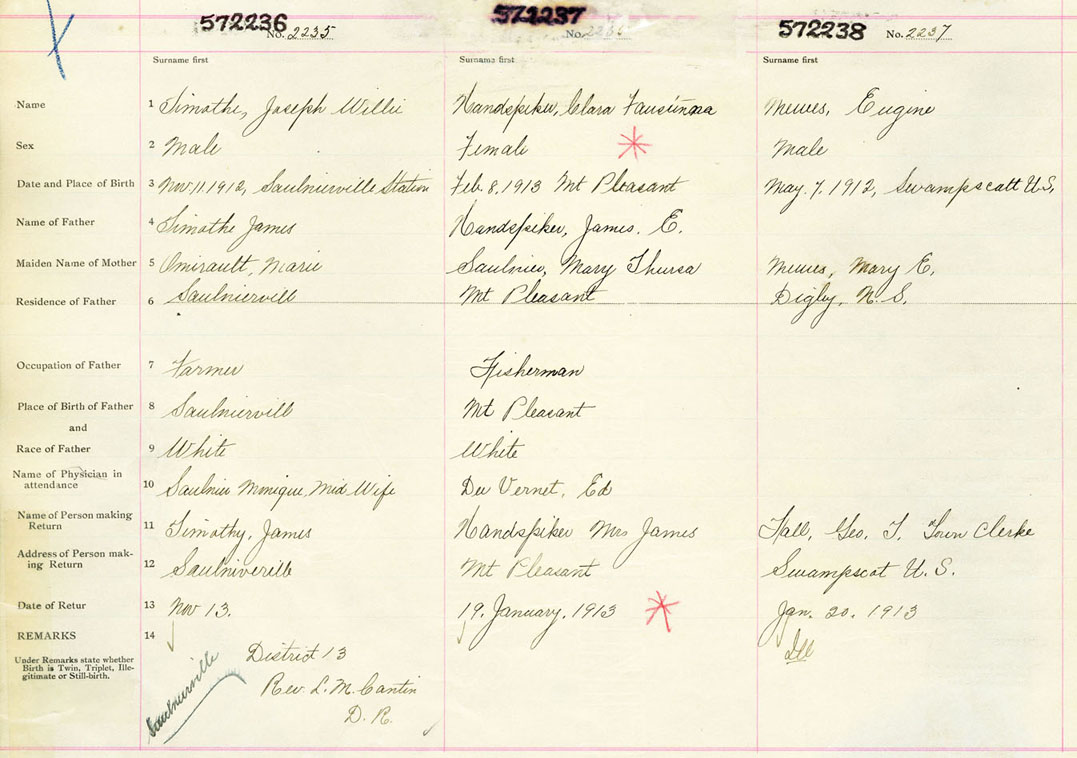 572236 No. 2235 572237 No. 572238 No. 2237
Surname first Surname first Surname first
Name 1 Timothe, Joseph Willie Handspiker, Clara Mewes, Eugine
Sex 2 Male Female Male
Date and Place of Birth 3 Nov. 11. 1912, Saulnierville Station Feb. 8. 1913 Mt Pleasant May. 7. 1912, Swampscatt U.S.
Name of Father 4 Timothe James Handspiker, James. E.
Maiden Name of Mother 5 Amirault, Marie Saulnier, Mary Thursa Mewes, Mary E.
Residence of Father 6 Saulniervill Mt Pleasant Digby, N. S.
Occupation of Father 7 Farmer Fisherman
Place of Birth of Father 8 Saulniervill Mt Pleasant
and
Race of Father 9 White White
Name of Physician in
attendance 10 Saulnier Monique, Mid Wife De Vernet, Ed
Name of Person making
Return 11 Timothy, James Handspiker Mrs James Fall, Geo. T. Town Clerke
Address of Person mak-
ing Return 12 Saulniverelle Mt Pleasant Swampscat U. S.
Date of Retur 13 Nov 13. 19. January. 1913 Jan. 20. 1913
REMARKS 14 Ill
Under Remarks state whether
Birth is Twin, Triplet, Ille-
gitimate or Still-birth.
Saulnierville
District 13
Rev. L. M. Cantin
D. R.